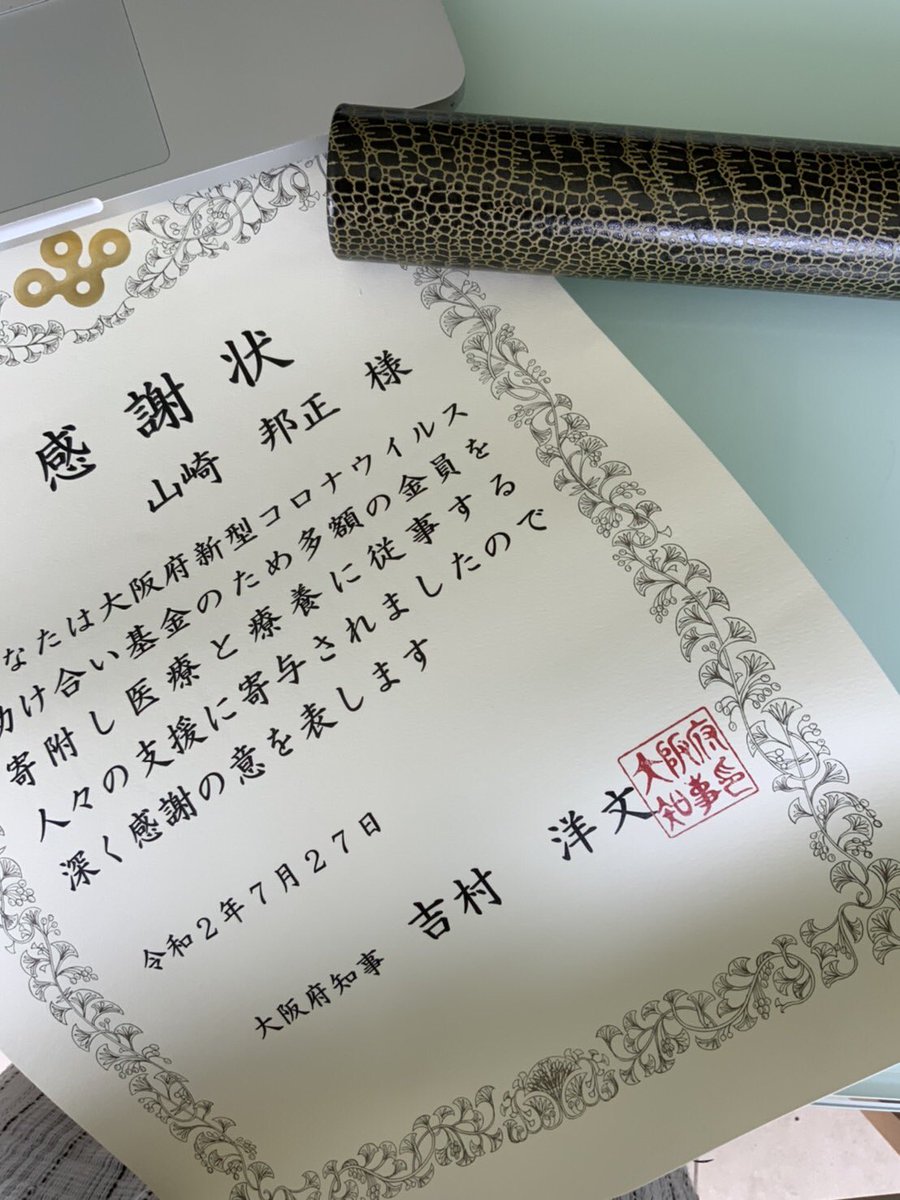 感謝状
山崎 邦正 様
なたは大阪府新型コロナウイルス
助け合い基金のため多額の金員を
寄附し医療と療養に従事する
人々の支援に寄与されましたので
深く感謝の意を表します
令和2年7月27日
大阪府知事 吉村 洋文
大阪府
知事印